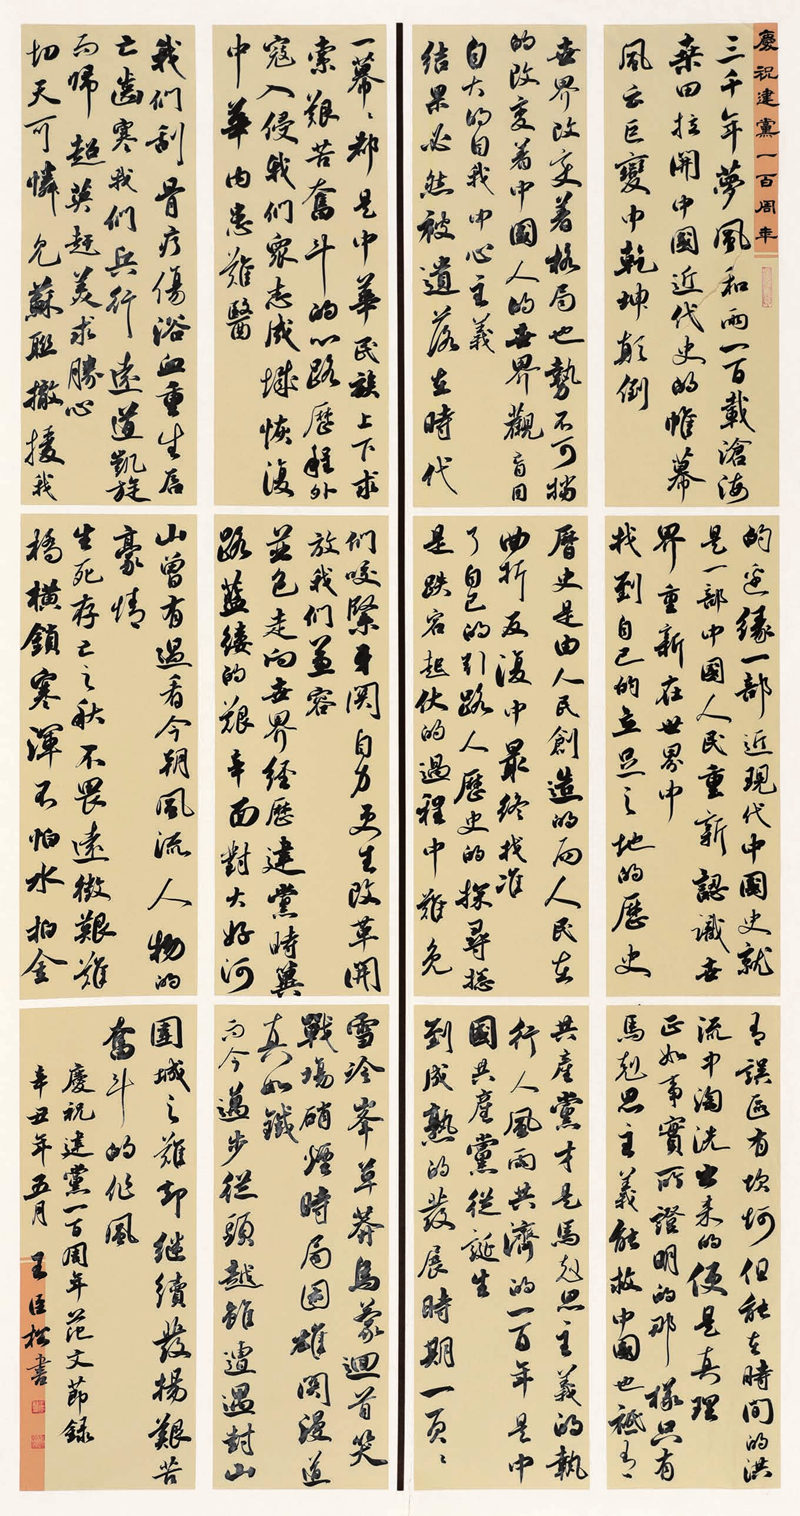 慶祝建黨一百周年
三千年夢風和雨一百載滄海
桑田拉開中國近代史的帷幕
風云巨變中乾坤顛倒
世界改变着格局也勢不可擋
的改变着中國人的世界觀盲目
自大的自我中心主義
結果必然被遺落在時代
的邊緣一部近現代中國史就
是一部中國人民重新認識世
界重新在世界中
找到自己的立足之地的歷史
曆史是由人民創造的而人民在
曲折反復中最終找准
了自己的引路人歷史的探尋總
是跌宕起伏的過程中難免
有誤區有坎坷但能在時間的洪
流中淘洗出来的便是真理
正如事實所證明的那樣只有
馬剋思主義能救中國也祗有
共產黨才是馬剋思主義的執
行人風雨共濟的一百年是中
國共產黨從誕生
到成熟的發展時期一頁々
一幕々都是中華民族上下求
索艱苦奮斗的心路歷程外
寇入侵我們衆志成城恢復
中華内患難醫
我們刮骨疗傷浴血重生唇
亡齒寒我們兵行遠道凱旋
而歸超英趕美求勝心
切天可憐見蘇聯撤援我
們咬緊牙関自力更生改革開
放我們兼容
並包走向世界經歷建黨時篳
路藍縷的艱辛面對大好河
山曾有過看今朝風流人物的
豪情
生死存亡之秋不畏遠徵艱難
橋橫鎖寒渾不怕水拍金
雪冷峯草莽烏蒙迴首笑
戰場硝煙時局困雄関漫道
真如鐵
而今邁步從頭越雖遭遇封山
圍城之難却继續發揚艱苦
奮斗的作風
慶祝建黨一百周年范文節録
辛丑年五月 王臣松書